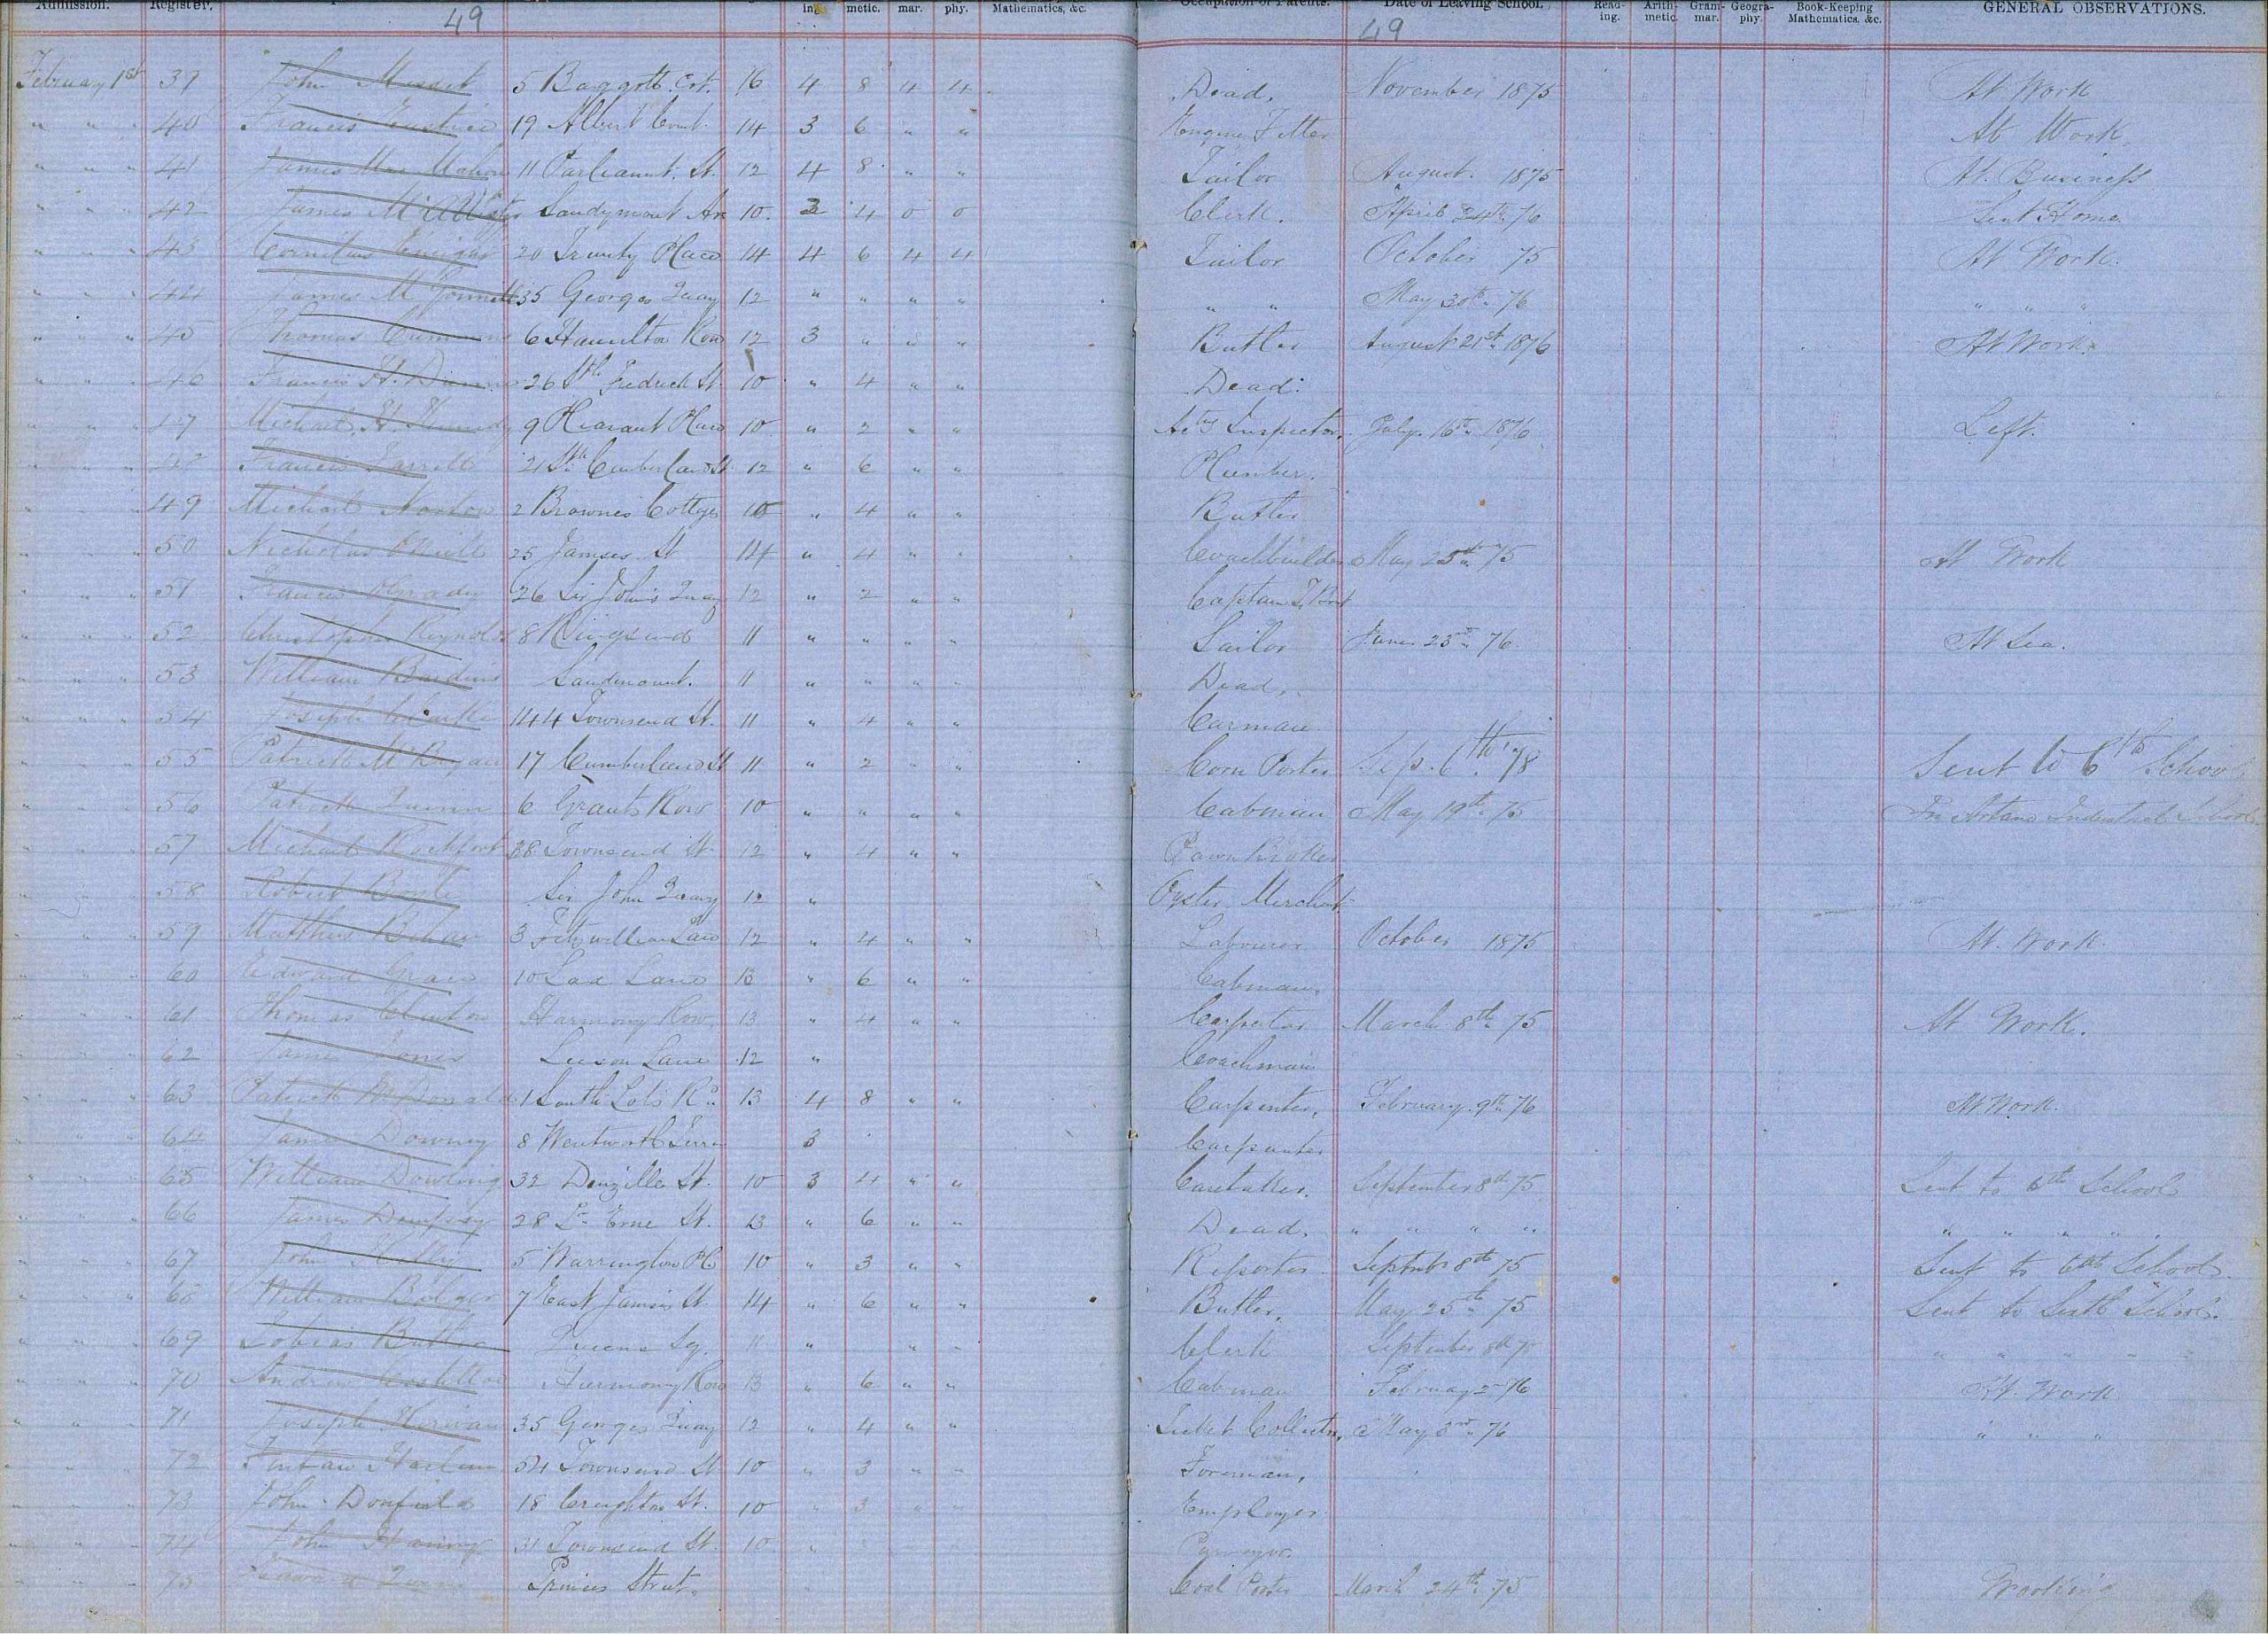 Admission. Register. ing metic. mar. phy. Mathematics, &c. Occupation of Parents. Date of Leaving School. Read-ing. Arith-metic. Gram-mar. Geogra-phy. Book-Keeping Mathematics, &c. GENERAL OBSERVATIONS.
49 49
February 1st 39 John 5 Baggott Crt. 16 4 8 4 4 Dead. November 1875 At Work
" " " 40 Francis 19 Albert Court 14 3 6 " " Engine Fitter At Work.
" " " 41 James Mac Mahon 11 Parliament. St. 12 4 8 " " Tailor August. 1875 At. Business
" " " 42 James McAllister Sandymount Av 10. 3 4 0 0 Clerk. April 24th 76 Sent Home
" " " 43 Cornelius Enright 20 Trinity Place 14 4 6 4 4 Tailor October 75 At Work.
" " " 44 James 35 Georges Quay 12 " " " " " " May 30th 76 " " "
" " " 45 Thomas 6 Hamilton Row 12 3 " " " Butler August 21st 1876 At Work.
" " " 46 Francis H. 26 Sth Fredrick St. 10 " 4 " " Dead.
" " " 47 Michael H. Kennedy 9 Pleasant Place 10 " 2 " " Inspector. July 16th 1876 Left.
" " " 48 Francis Farrell 21 Sth Cumberland St. 12 " 6 " " Plumber.
" " 49 Michael Norton 2 Brownes Cottages 10 " 4 " " Butler
" " " 50 Nicholas O'Neill 25 Jamses St 14 " 4 " " Coachbuilder May 25th 75 At Work
" " " 51 Francis O'Grady 26 Sir John's Quay 12 " 2 " " Captain
" " " 52 Christopher Reynolds 8 Ringsend 11 " " " " Sailor June 25th 76. At Sea.
" " " 53 William Sandmount. 11 " " " " Dead.
" " " 54 Joseph Clarke 144 Townsend St. 11 " 4 " " Carman
" " " 55 Patrick 17 Cumberland St 11 " 2 " " Corn Porter Sep. 6th '78 Sent to 6th School
" " " 56 Patrick Quinn 6 Grants Row 10 " " " " Cabman May 19th 75 In Artane Industrial School
" " " 57 Michael Rochfort 38 Townsend St 12 " 4 " " Pawn Broker
" " " 58 Robert Boyle Sir John Quay 12 " Oyster Merchant
" " " 59 Matthew Behan 3 Fitzwilliam Lane 12 " 4 " " Labourer October 1875 At. Work.
" " " 60 Edward Grace 10 Lad Lane 13 " 6 " " Cabman.
" " " 61 Thomas Clinton Harmony Row 13 " 4 " " Carpenter March 8th 75 At Work.
" " " 62 James Jones Leeson Lane 12 " Coachman
" " " 63 Patrick McDonald 1 South Lots Rd 13 4 8 " " Carpenter. February 9th 76 At Work.
" " " 64 James Downey 8 Wentworth 3 Carpenter
" " " 65 William Dowling 32 Denzille St. 10 3 4 " " Caretaker. September 8th 75 Sent to 6th School
" " " 66 James Dempsey 28 Lr Erne St. 13 " 6 " " Dead. " " " " " " " " "
" " " 67 John 5 Warrington Pl 10 " 3 " " Reporter September 8th 75 Sent to 6th School.
" " " 68 William Bolger 7 East James St 14 " 6 " " Butler. May 25th 75 Sent to Sixth School.
" " " 69 Tobias Butler Queens Sq. 11 " " " Clerk September 8th 75 " " " " "
" " " 70 Andrew Costelloe Harmony Row 13 " 6 " " Cabman February 2 76 At. Work
" " " 71 Joseph Kirwan 35 Georges Quay 12 " 4 " " Ticket Collector. May 3rd 76 " " "
" " " 72 Fintan 54 Townsend St 10 " 3 " " Foreman.
" " " 73 John 18 Creighton St. 10 " 3 " " Employer
" " " 74 John 31 Townsend St. 10 "
" " " 75 Princes Street. Coal Porter March 24th 75 Working